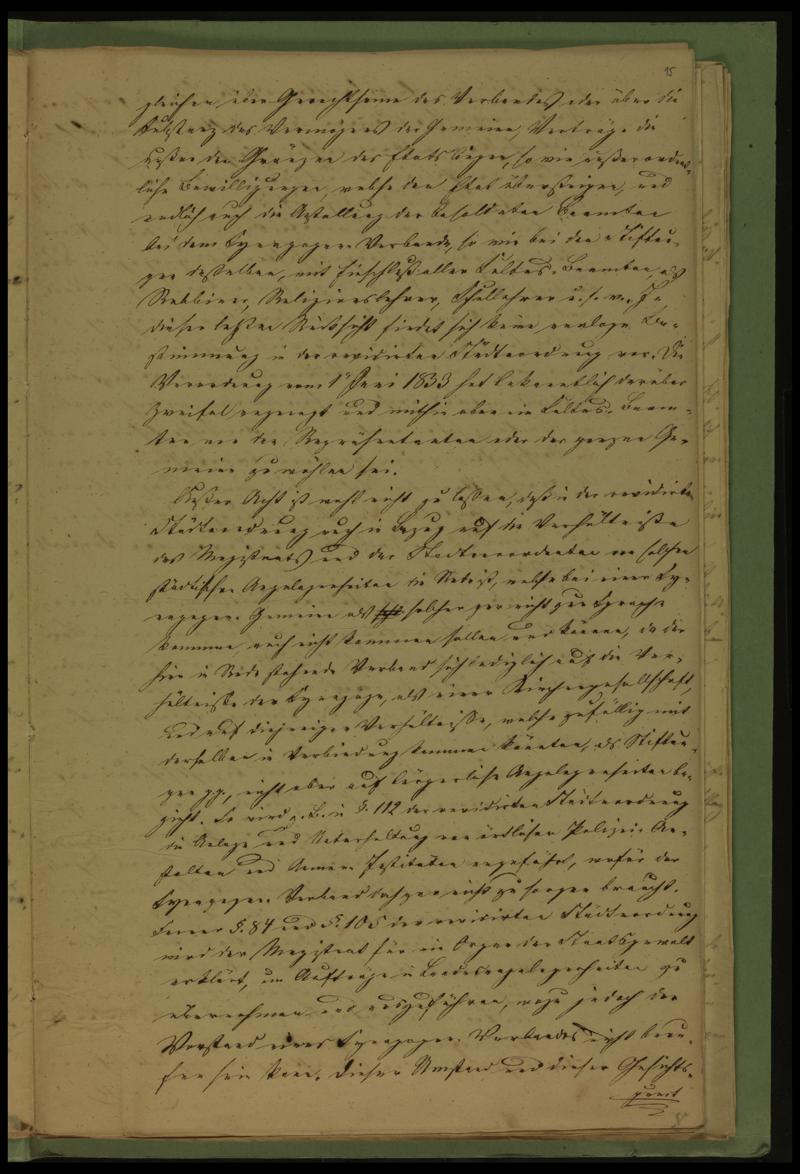 15
gleichen über Gerechtsame des Verbandes oder über die
Substanz des Vermögens der Gemeine, Verträge die
außer den Gränzen des Etats liegen, so wie außerordent-
liche Bewilligungen, welche den Etat übersteigen, und
endlich auch die Anstellung der besoldeten Beamten
bei dem Synagogen-Verbande, so wie bei den Stiftun-
gen desselben, mit Einschluß aller Cultus-Beamten, als
Rabbiner, Religionslehrer, Schullehrer u. s. w. In
dieser letzten Rücksicht findet sich keine analoge Be-
stimmung in der revidirten Städteordnung vor. Die
Verordnung vom 1n Juni 1833 hat bekanntlich darüber
Zweifel angeregt und mithin aber ein Cultus-Beam-
ter von den Repräsentanten oder der ganzen Ge-
meine zu wählen sei.
Außer Acht ist wohl nicht zu lassen, daß in der revidirten
Städteordnung auch in Bezug auf die Verhältnisse
des Magistrats und der Stadtverordneten von solchen
städtischen Angelegenheiten die Rede ist, welche bei einer Sy-
nagogen-Gemeine als solcher gar nicht zur Sprache
kommen auch nicht kommen sollen und können, da der
hier in Rede stehende Verband sich lediglich auf die Ver-
hältnisse der Synagoge, als einer Kirchengesellschaft,
und auf diejenigen Verhältnisse, welche zufällig mit
derselben in Verbindung kommen könnten, als Stiftun-
gen pp., nicht aber auf bürgerliche Angelegenheiten be-
zieht. So wird z. B. in §. 112 der revidirten Städteordnung
die Anlage und Unterhaltung von örtlichen Polizei-An-
stalten und Armen-Instituten angeführt, wofür der
Synagogen-Verband dagegen nicht zu sorgen braucht.
Ferner §. 84 und §. 105 der revidirten Städteordnung
wird der Magistrat für ein Organ der Staatsgewalt
erklärt, um Aufträge in Landesangelegenheiten zu
übernehmen und auszuführen, wozu jedoch der
Vorstand eines Synagogen-Verbandes nicht beru-
fen sein kann. Dieser Umstand und dieser Gesichts-
punct
8